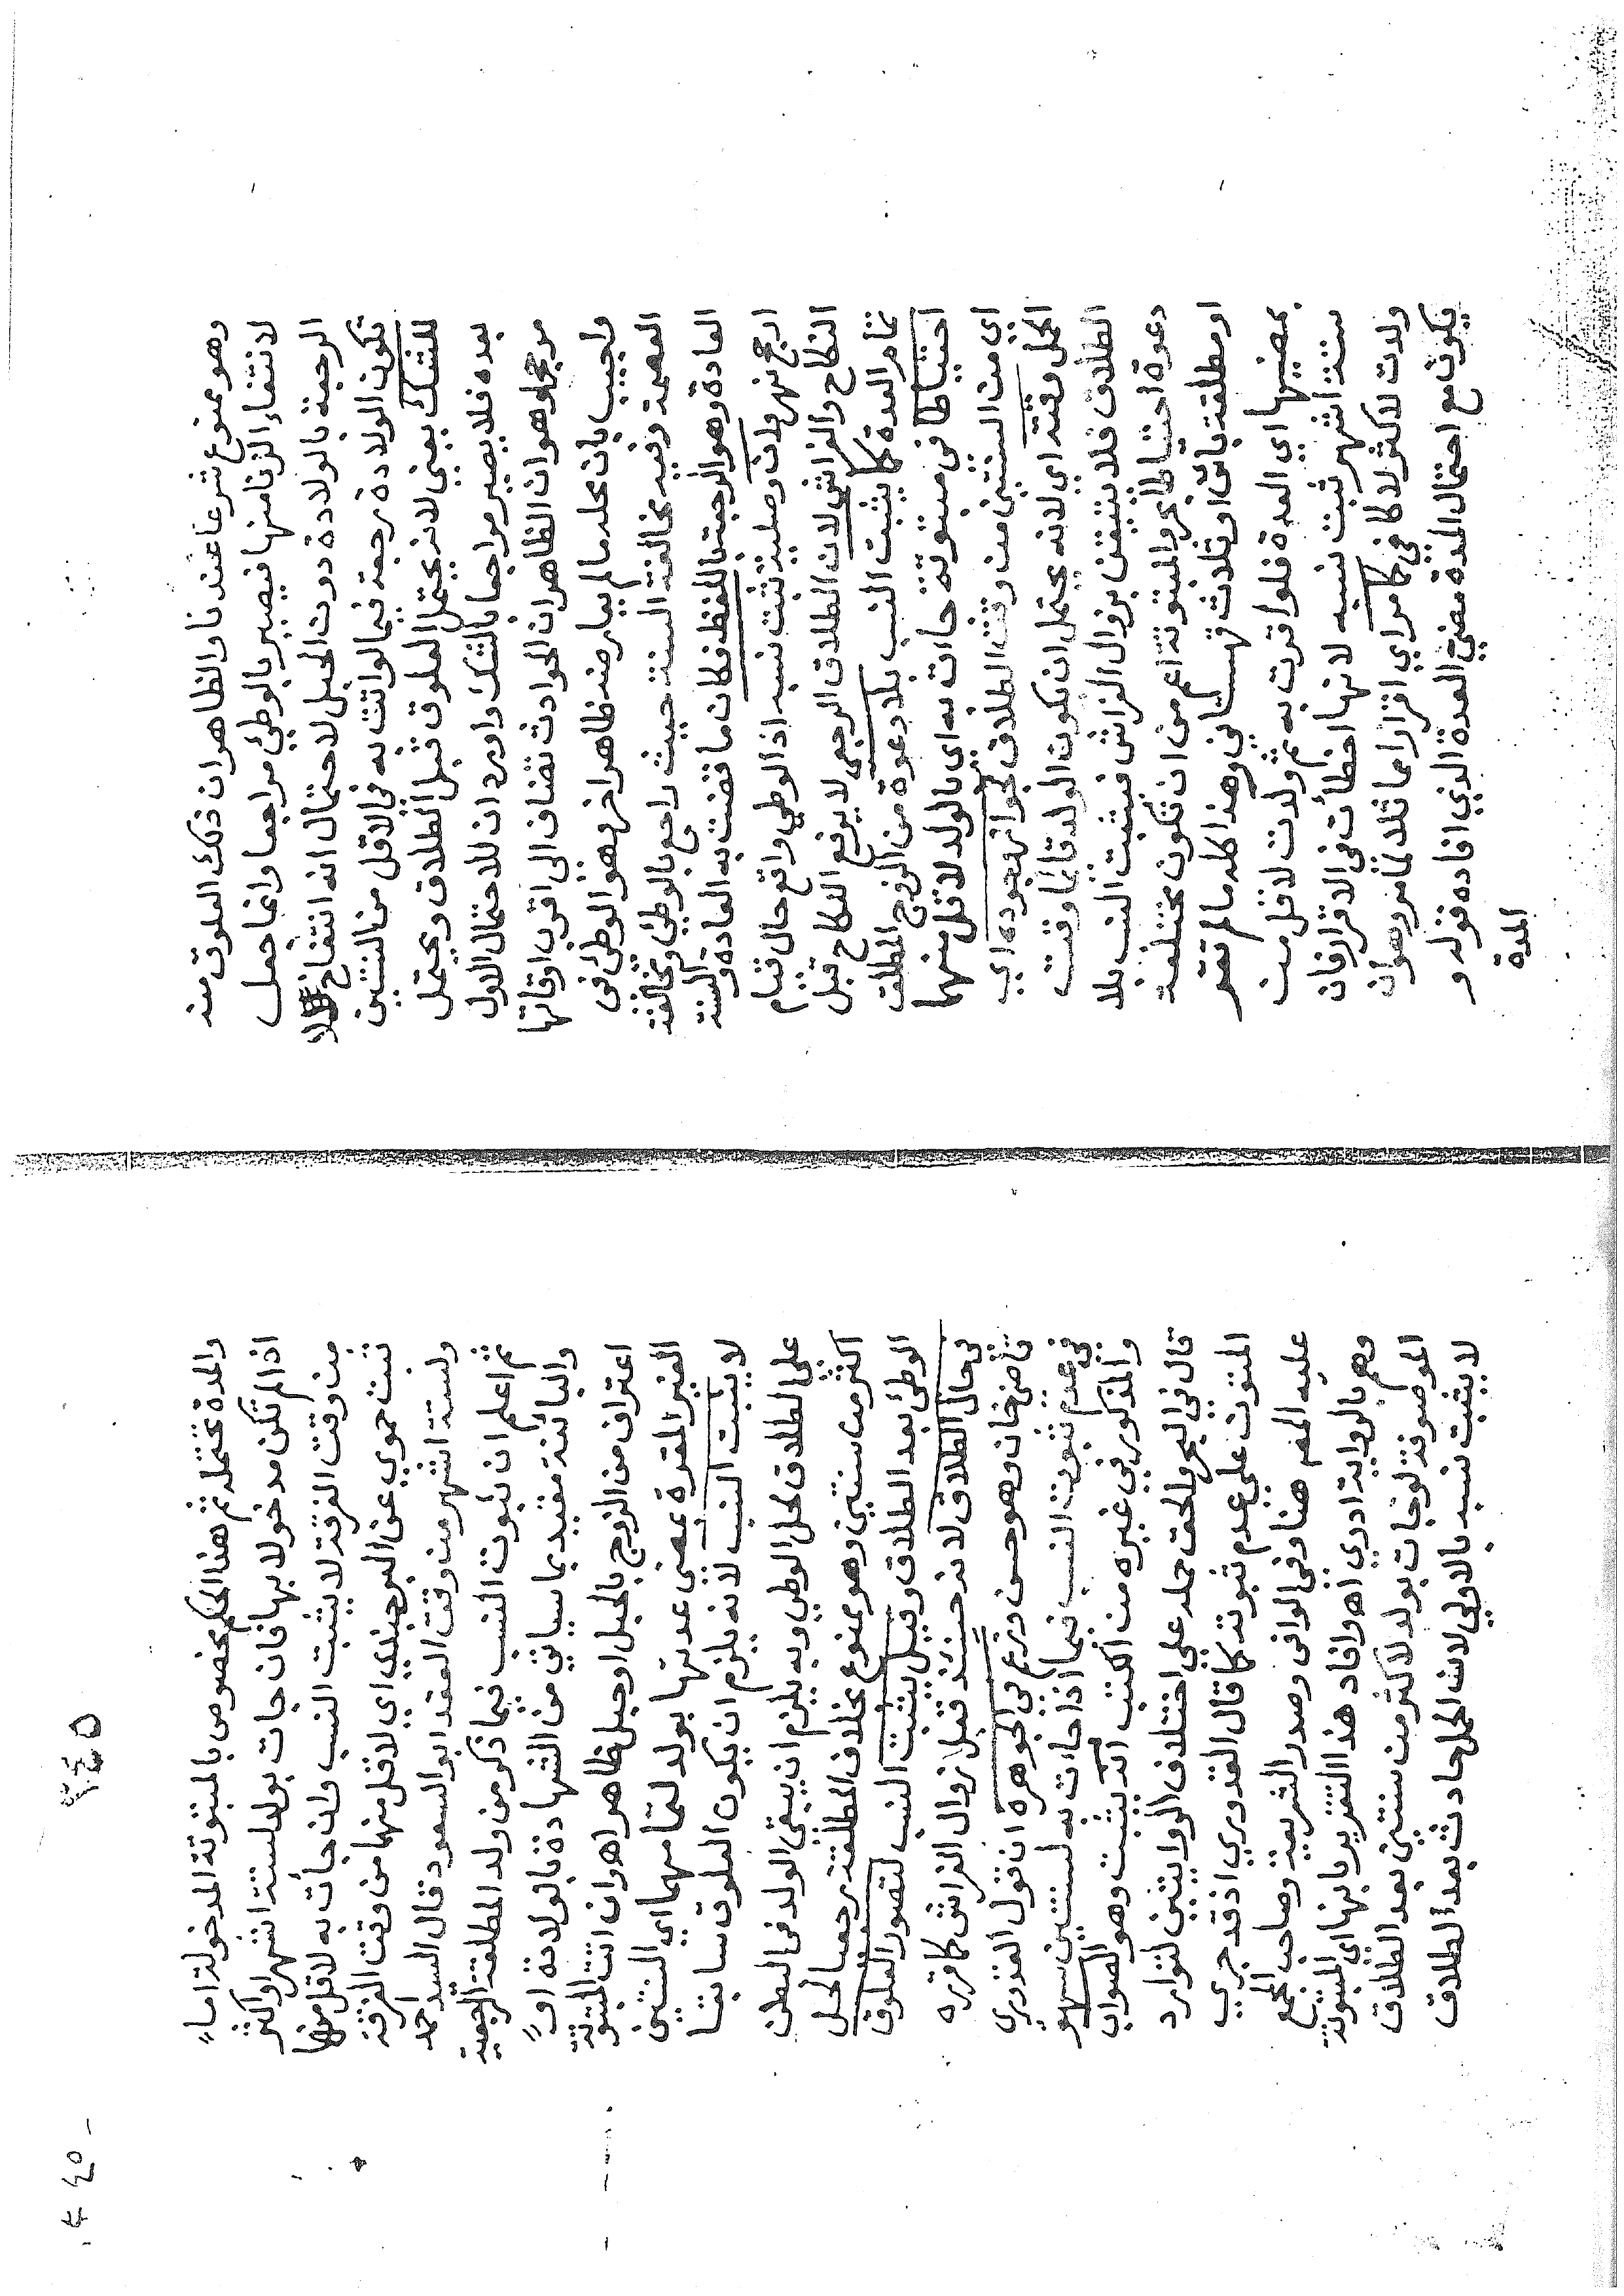 وهو ممنوع شرعا عندنا والظاهر ان ذلك العلوق منه
لانتفاء الزنا منها فيصير بالوطئ مراجعا وانما جعل
الرجعة بالولادة دون الحبل لاحتمال انه انتفاخ فلا
تكون الولادة رجعة فيما لو اتت به في الاقل من السنتين
للشك يعني لانه يحتمل العلوق قبل الطلاق ويحتمل
بعده فلا يصير مراجعا بالشك واورد ان للاحتمال الاول
مرجحا وهو ان الظاهر ان الحوادث تضاف الى اقرب اوقاتها
واجيب بان محله ما لم يعارضه ظاهر اخر وهو الوطئ في
العصمة وفيه مخالفة السنة حيث راجع بالوطئ ومخالفة
العادة وهو الرجعة باللفظ فكان ما قضت به العادة والسنة
ارجح نهر وان وصلية تثبت نسبه اذ الوطي واقع حال قيام
النكاح والفراش لان الطلاق الرجعي لا يرفع النكاح قبل
تمام العدة كما يثبت النسب بلا دعوة من الزوج المطلق
احتياطا في مبتوتة جات به اي بالولد لاقل منهما
اي من السنتين من وقت الطلاق لجواز وجوده اي
الحمل وقته اي لانه يحتمل ان يكون الولد قائما وقت
الطلاق فلا يتيقن بزوال الفراش فيثبت النسب بلا
دعوة احتياطا بحر والمبتوتة اعم من ان تكون مختلعة
او مطلقة بائن او بثلاث قهستاني وهذا كله ما لم تقر
بمضيها اي العدة فلو اقرت به ثم ولدت لاقل من
ستة اشهر ثبت نسبه لانها اخطأت في الاقرار فان
ولدت لاكثر لا كافي كما مر اي اقرارا مماثلا لما مر وهو ان
يكون مع احتمال المدة مضي العدة الذي افاده قوله و
المدة
٤٤٥
والمدة تحتمله ثم هذا الحكم مخصوص بالمبتوتة المدخولة اما
اذا لم تكن مدخولا بها فان جات بولد لستة اشهر او اكثر
من وقت الفرقة لا يثبت النسب وان جأت به لاقل منها
تثبت حموي عن البرجندي اي لاقل منهما من وقت الفرقة
ولستة اشهر من وقت العقد ابو السعود قال السيد احمد
ثم اعلم ان ثبوت النسب فيما ذكر من ولد المطلقة الرجعية
والبائنة مقيد بما سيأتي من الشهادة بالولادة او
اعتراف من الزوج بالحبل او حبل ظاهر اهـ وان اتت المبتوتة
الغير المقرة بمضي عدتها بولد لتمامهما اي السنتين
لا يثبت النسب لانه يلزم ان يكون العلوق سابقا
على الطلاق لحل الوطي وبه يلزم ان يبقى الولد في البطن
اكثر من سنتين وهو ممنوع بخلاف المطلقة رجعيا لحل
الوطئ بعد الطلاق وقيل يثبت النسب لتصور العلوق
في حال الطلاق لانه حينئذ قبل زوال الفراش كما قرره
قاضي خان وهو حسن وزعم في الجوهرة ان قول القدوري
في عدم ثبوت النسب فيما اذا جاءت به لسنتين سهو
والمذكور في غيره من الكتب انه يثبت وهو الصواب
قال في البحر والحق حمله على اختلاف الروايتين لتوارد
المتون على عدم ثبوته كما قال القدوري اذ قد جرى
عليه المص هنا وفي الوافي وصدر الشريعة وصاحب المجمع
وهم بالرواية ادري اهـ وافاد هذا التقرير بانها اي المبتوتة
الموصوفة لو جات بولد لاكثر من سنتين بعد الطلاق
لا يثبت نسبه بالاولى لان الحمل حادث بعد الطلاق
٤٤٥